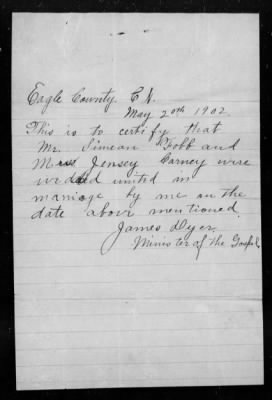 Eagle County C N.
May 20th 1902.
This is to certify that
Mr. Simean Fobb and
Miss Jensey Carney were
united in
marriage by me on the
date above mentioned.
James Dyer.
Minister of the Gospel.